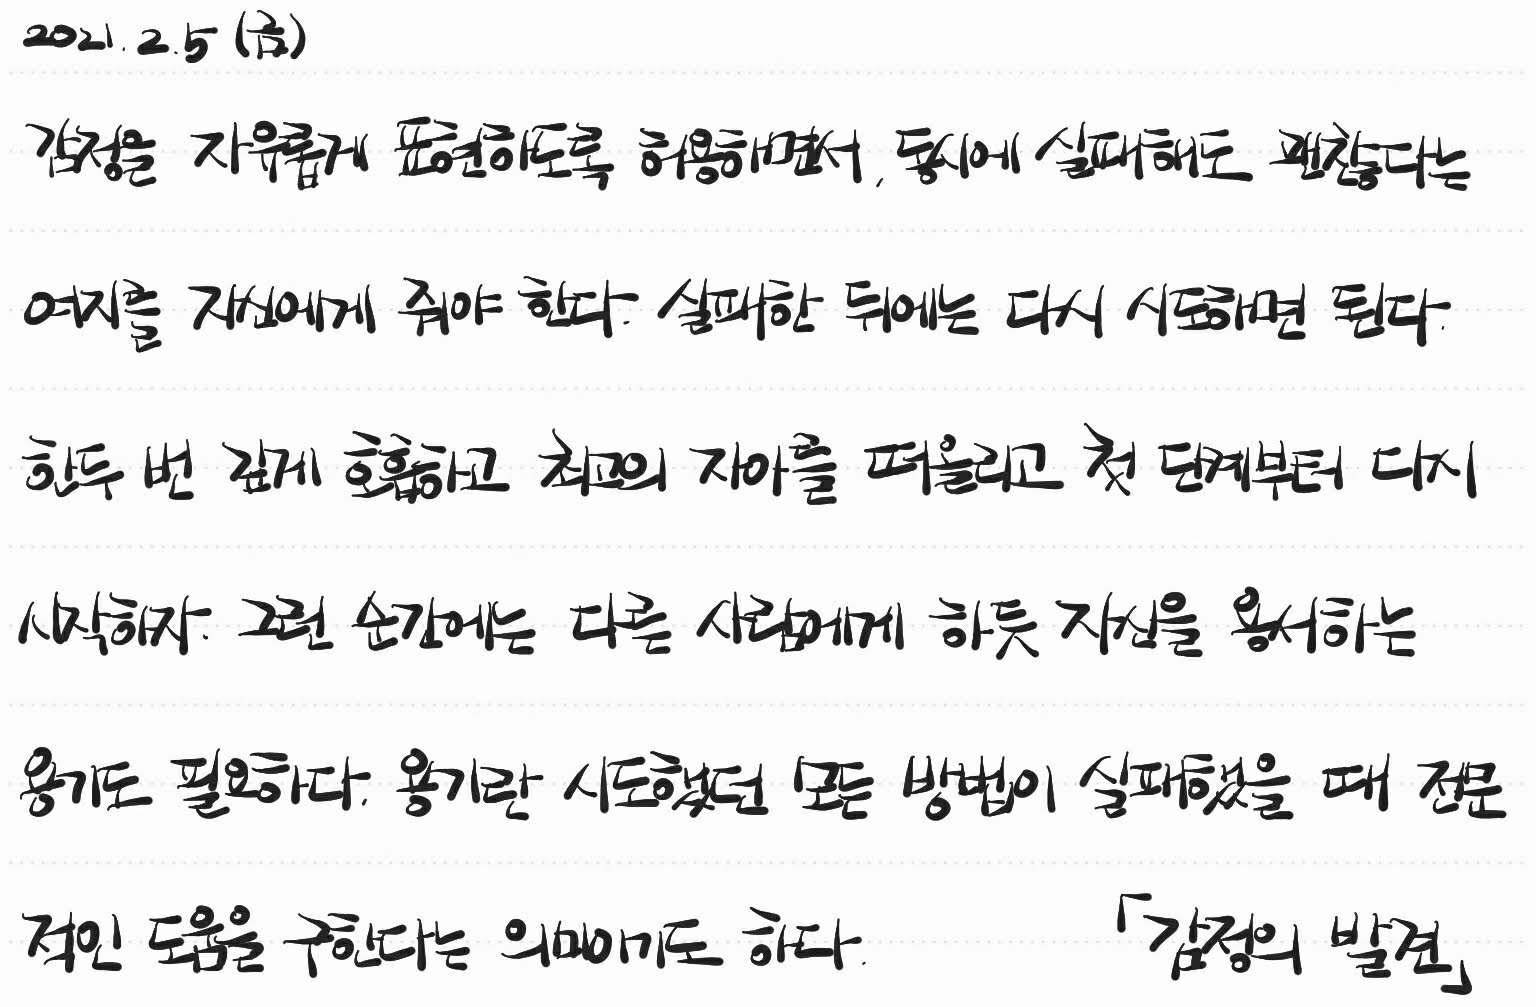 2021. 2. 5 (금)
감정을 자유롭게 표현하도록 허용하면서, 동시에 실패해도 괜찮다는
여지를 자신에게 줘야 한다. 실패한 뒤에는 다시 시도하면 된다.
한두 번 깊게 호흡하고 최고의 자아를 떠올리고 첫 단계부터 다시
시작하자. 그런 순간에는 다른 사람에게 하듯 자신을 용서하는
용기도 필요하다. 용기란 시도했던 모든 방법이 실패했을 때 전문
적인 도움을 구한다는 의미이기도 하다. 「감정의 발견」